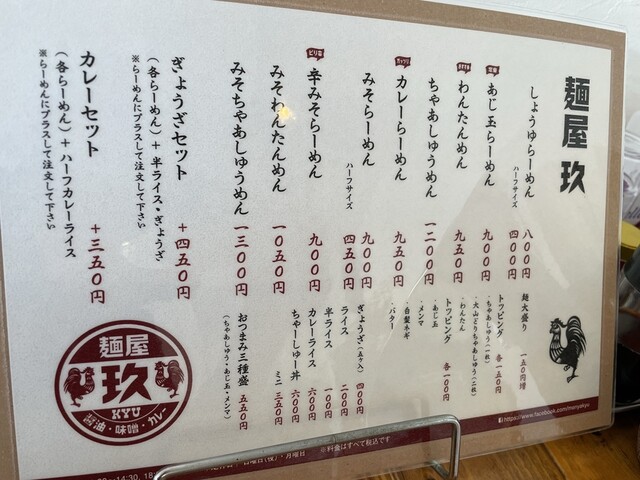 麺屋 玖
しょうゆらーめん 八〇〇円
ハーフサイズ 四〇〇円
定番 あじ玉らーめん 九〇〇円
おすすめ わんたんめん 九五〇円
ちゃあしゅうめん 一二〇〇円
ガッツリ カレーらーめん 九五〇円
みそらーめん 九〇〇円
ハーフサイズ 四五〇円
ピリ辛 辛みそらーめん 九〇〇円
みそわんたんめん 一〇五〇円
みそちゃあしゅうめん 一三〇〇円
ぎょうざセット ＋四五〇円
（各らーめん）＋半ライス・ぎょうざ
※らーめんにプラスして注文して下さい
カレーセット ＋三五〇円
（各らーめん）＋ハーフカレーライス
※らーめんにプラスして注文して下さい
麺大盛り 一五〇円増
トッピング 各一五〇円
・ちゃあしゅう（一枚）
・大山どりちゃあしゅう（二枚）
・わんたん
トッピング 各一〇〇円
・あじ玉
・メンマ
・白髪ネギ
・バター
ぎょうざ（五ヶ入） 四〇〇円
ライス 二〇〇円
半ライス 一〇〇円
カレーライス 六〇〇円
ちゃーしゅー丼 六〇〇円
ミニ 三五〇円
おつまみ三種盛 五五〇円
（ちゃあしゅう・あじ玉・メンマ）
麺屋
玖
KYU
醤油・味噌・カレー
https://www.facebook.com/menyakyu
※料金はすべて税込です
14:30, 18
日曜日(夜)・月曜日